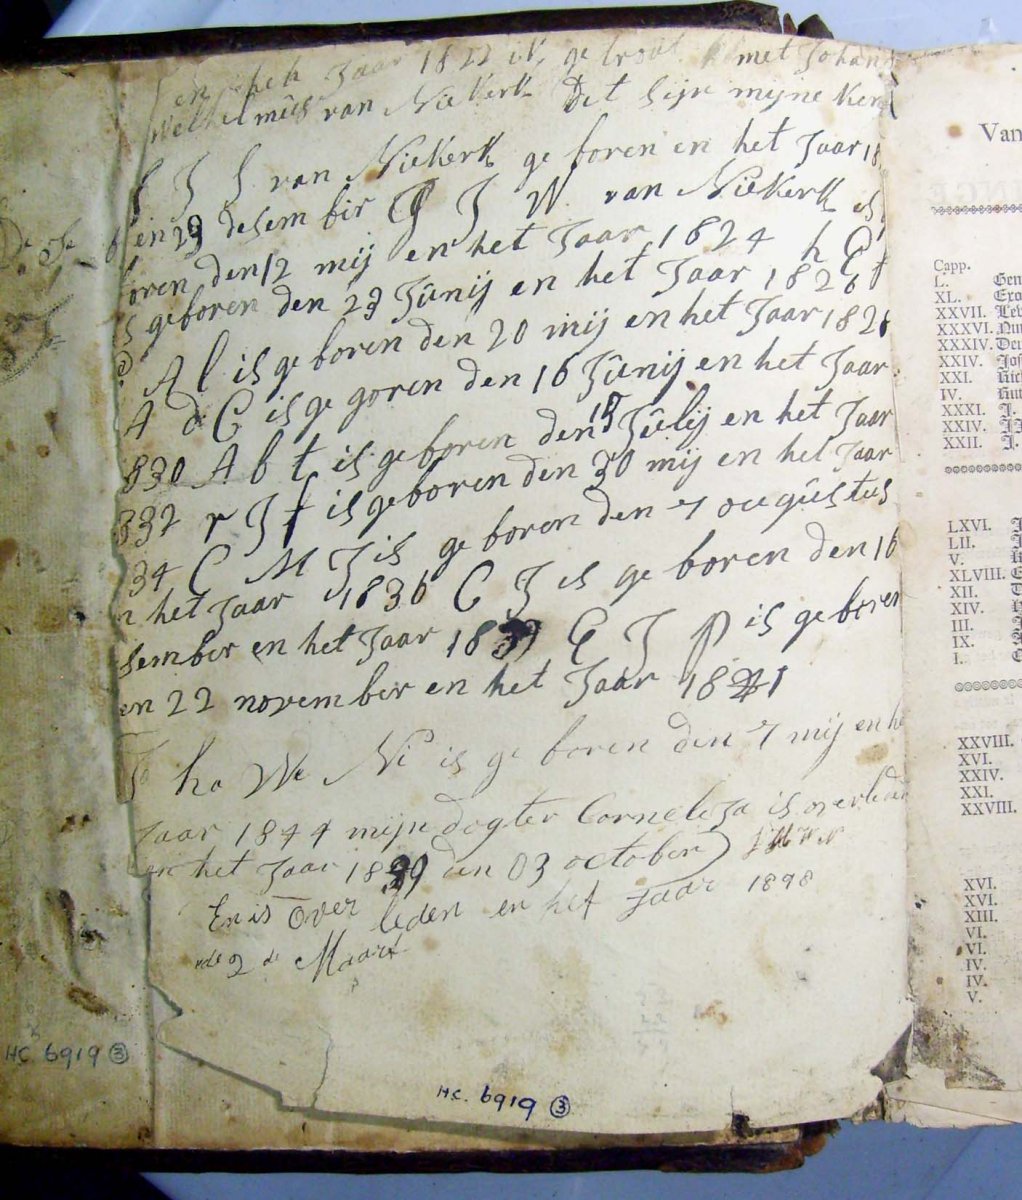 en het Jaar 1822 ik getrout met Johann
Welhelmus van Niekerk Det sijn mijne ken
J J van Niekerk ge boren en het Jaar 18
en 29 desem bir J W van Niekerk is
oren den 12 mij en het Jaar 1824 h
geboren den 23 Jûnij en het Jaar 1826
A l is ge boren den 20 mij en het Jaar 182
A d C is ge goren den 16 Jûnij en het Jaar
830 A b t is ge boren den 18 Jûlij en het Jaar
332 r J f is geboren den 30 mij en het Jaar
34 C M J is ge boren den 7 ou gûstus
n het Jaar 1836 C J is ge boren den 16
sember en het Jaar 18 J P is ge boren
en 22 novem ber en het Jaar 1841
ha We Ni is ge boren den 7 mij en he
Jaar 1844 mijn dogter Corneleja is overleden
en het Jaar 1839 den 03 october
En is Over leden en het Jaar 1898
de 2 de Maart
HC. 6919 ③
HC. 6919 ③
Van
Capp.
L. Gen
XL. Exo
XXVII. Lev
XXXVI. Nu
XXXIV. Deu
XXIV. Jos
XXI. Rich
IV. Rut
XXXI. J.
XXIV. JJ
XXII. J.
LXVI. J
LII. J
V. K
XLVIII. E
XII. D
XIV. H
III. J
IX. A
I. O
XXVIII.
XVI.
XXIV.
XXI.
XXVIII.
XVI.
XVI.
XIII.
VI.
VI.
IV.
IV.
V.